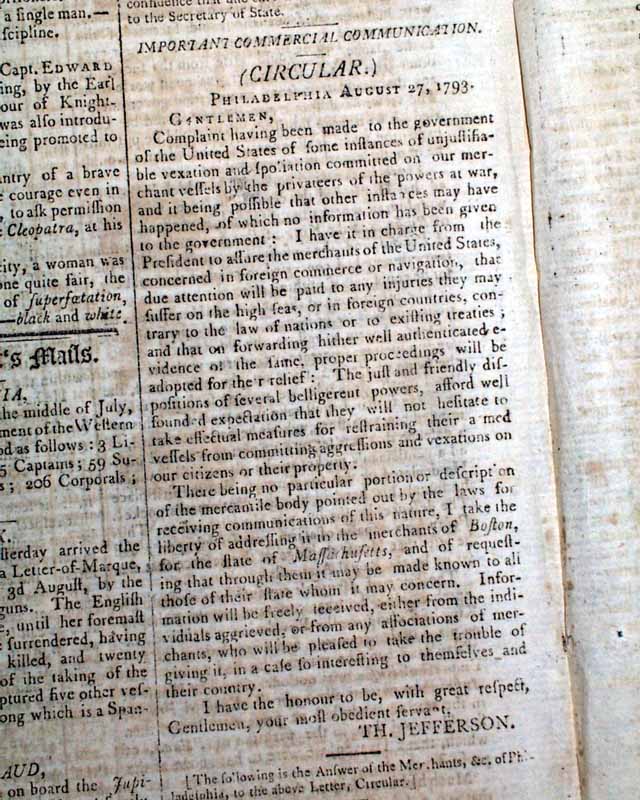 a ſingle man.—
ſcipline.
Capt. EDWARD
ing, by the Earl
our of Knight-
was alſo introdu-
eing promoted to
antry of a brave
e courage even in
, to aſk permiſſion
e Cleopatra, at his
city, a woman was
one quite fair, the
of ſuperfœtation,
—black and white.
's Maſſs.
IA,
the middle of July,
ment of the Weſtern
od as follows: 3 Li-
5 Captains; 59 Su-
s; 206 Corporals;
ſterday arrived the
a Letter-of-Marque,
3d Auguſt, by the
guns. The Engliſh
e, until her foremaſt
e ſurrendered, having
killed, and twenty
of the taking of the
aptured five other veſ-
ong which is a Span-
AUD,
on board the Jupi-
to the Secretary of State.
IMPORTANT COMMERCIAL COMMUNICATION.
(CIRCULAR.)
PHILADELPHIA AUGUST 27, 1793.
GENTLEMEN,
Complaint having been made to the government
of the United States of ſome inſtances of unjuſtifia-
ble vexation and ſpoliation committed on our mer-
chant veſſels by the privateers of the powers at war,
and it being poſſible that other inſtances may have
happened, of which no information has been given
to the government: I have it in charge from the
Preſident to aſſure the merchants of the United States,
concerned in foreign commerce or navigation, that
due attention will be paid to any injuries they may
ſuffer on the high ſeas, or in foreign countries, con-
trary to the law of nations or to exiſting treaties;
and that on forwarding hither well authenticated e-
vidence of the ſame, proper proceedings will be
adopted for their relief: The juſt and friendly diſ-
poſitions of ſeveral belligerent powers, afford well
founded expectation that they will not heſitate to
take effectual meaſures for reſtraining their armed
veſſels from committing aggreſſions and vexations on
our citizens or their property.
There being no particular portion or deſcription
of the mercantile body pointed out by the laws for
receiving communications of this nature, I take the
liberty of addreſſing it to the merchants of Boſton,
for the ſtate of Maſſachuſetts, and of requeſt-
ing that through them it may be made known to all
thoſe of their ſtate whom it may concern. Infor-
mation will be freely received, either from the indi-
viduals aggrieved, or from any aſſociations of mer-
chants, who will be pleaſed to take the trouble of
giving it, in a caſe ſo intereſting to themſelves and
their country.
I have the honour to be, with great reſpect,
Gentlemen, your moſt obedient ſervant,
TH. JEFFERSON.
[The following is the Anſwer of the Merchants, &c. of Phi-
ladelphia, to the above Letter, Circular.]